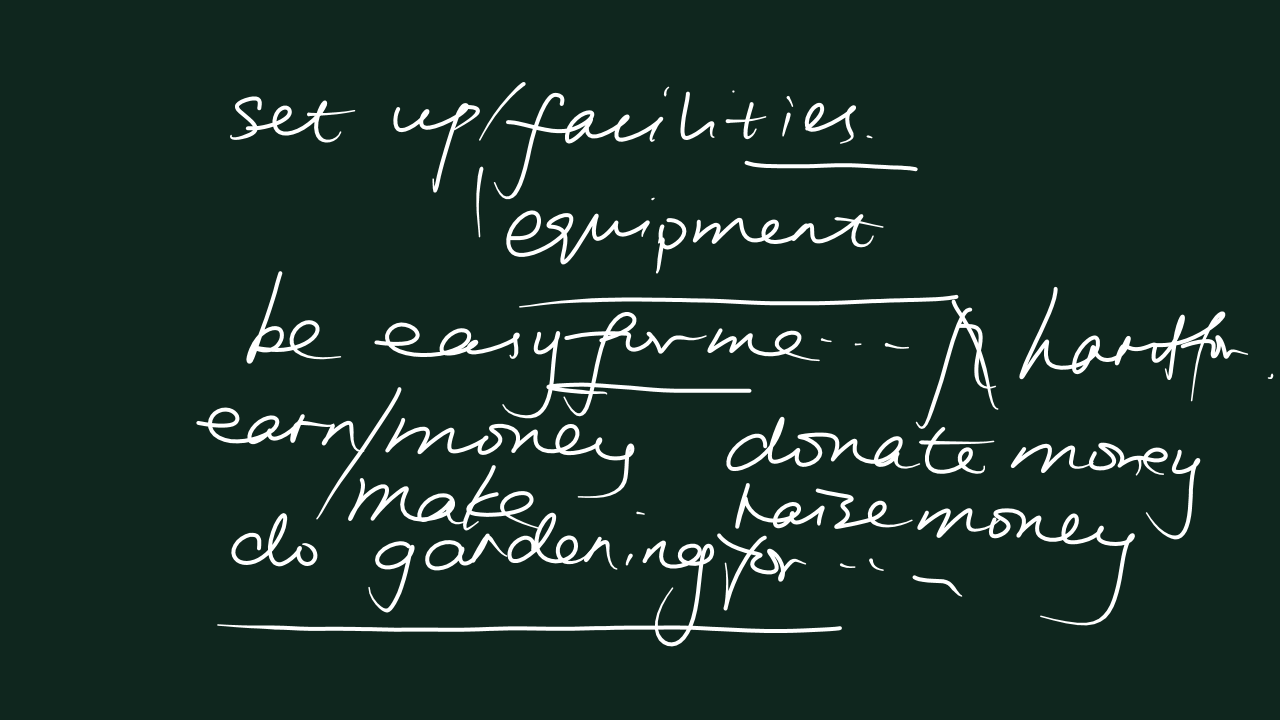 set up/facilities.
equipment
be easy for me... hard for.
earn/money donate money
make raise money
do gardening for...